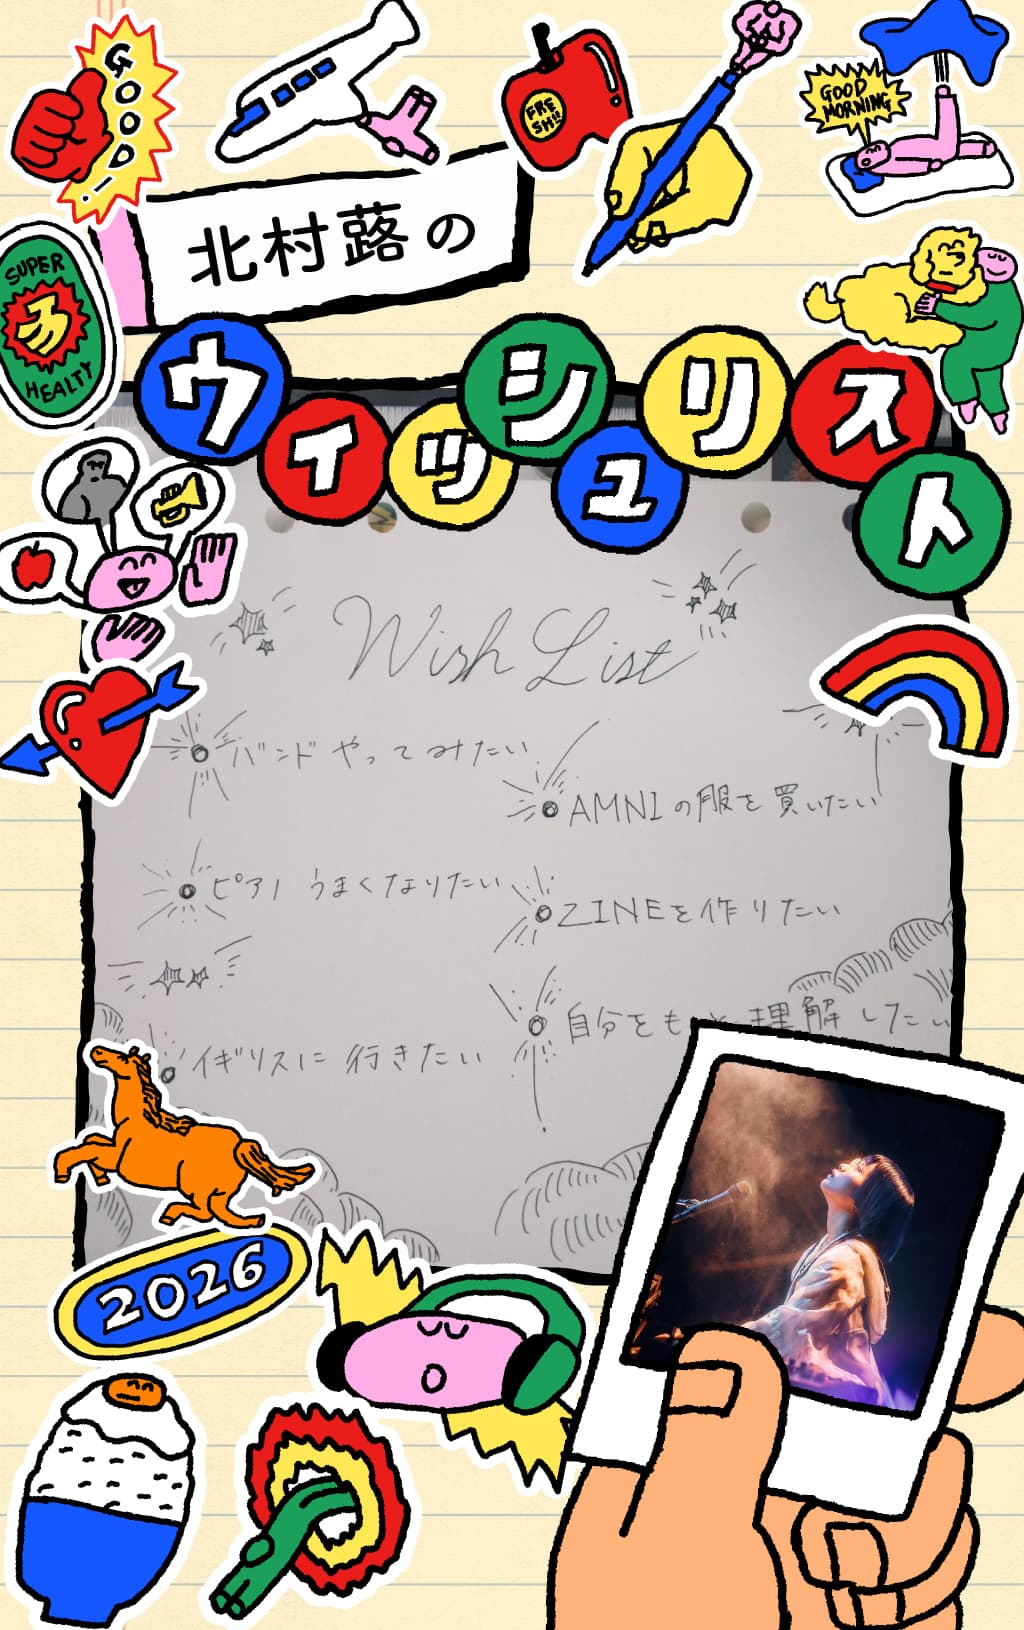 GOOD!
FRESH!!
GOOD MORNING
北村蕗の
SUPER
HEALTY
ウィッシュリスト
Wish List
バンドやってみたい
AMNIの服を買いたい
ピアノうまくなりたい
ZINEを作りたい
自分をもっと理解したい
イギリスに行きたい
2026